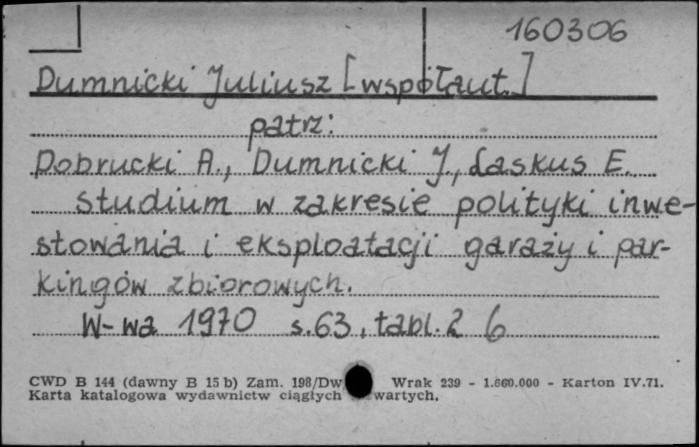 160306
Dumnicki Juliusz [współaut.]
patrz:
Dobrucki A., Dumnicki J., Laskus E.
Studium w zakresie polityki inwe-
stowania i eksploatacji garaży i par-
kingów zbiorowych.
W-wa 1970 s.63, tabl. 2 6
CWD B 144 (dawny B 15 b) Zam. 198/Dw Wrak 239 - 1.660.000 - Karton IV.71.
Karta katalogowa wydawnictw ciągłych wartych.